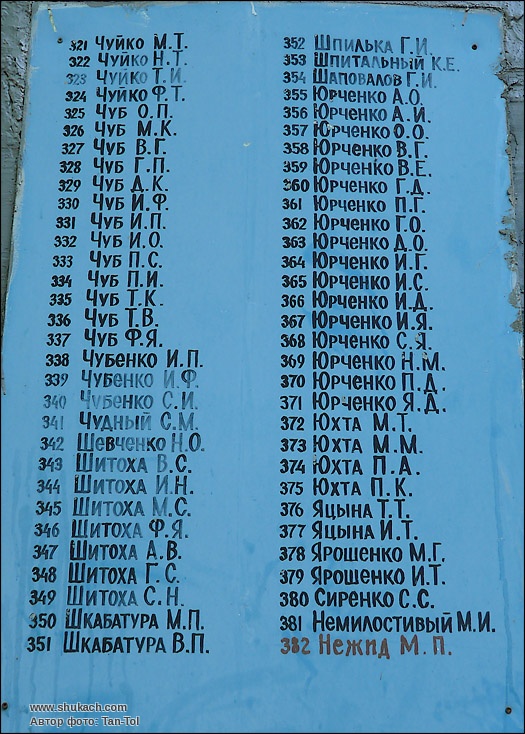 321 Чуйко М.Т.
322 Чуйко Н.Т.
323 Чуйко Т.И.
324 Чуйко Ф.Т.
325 Чуб О.П.
326 Чуб М.К.
327 Чуб В.Г.
328 Чуб Г.П.
329 Чуб Д.К.
330 Чуб И.Ф.
331 Чуб И.П.
332 Чуб И.О.
333 Чуб П.С.
334 Чуб П.И.
335 Чуб Т.К.
336 Чуб Т.В.
337 Чуб Ф.Я.
338 Чубенко И.П.
339 Чубенко И.Ф.
340 Чубенко С.И.
341 Чудный С.М.
342 Шевченко Н.О.
343 Шитоха В.С.
344 Шитоха И.Н.
345 Шитоха М.С.
346 Шитоха Ф.Я.
347 Шитоха А.В.
348 Шитоха Г.С.
349 Шитоха С.Н.
350 Шкабатура М.П.
351 Шкабатура В.П.
352 Шпилька Г.И.
353 Шпитальный К.Е.
354 Шаповалов Г.И.
355 Юрченко А.О.
356 Юрченко А.И.
357 Юрченко О.О.
358 Юрченко В.Г.
359 Юрченко В.Е.
360 Юрченко Г.Д.
361 Юрченко П.Г.
362 Юрченко Г.О.
363 Юрченко Д.О.
364 Юрченко И.Г.
365 Юрченко И.С.
366 Юрченко И.Д.
367 Юрченко И.Я.
368 Юрченко С.Я.
369 Юрченко Н.М.
370 Юрченко П.Д.
371 Юрченко Я.Д.
372 Юхта М.Т.
373 Юхта М.М.
374 Юхта П.А.
375 Юхта П.К.
376 Яцына Т.Т.
377 Яцына И.Т.
378 Ярошенко М.Г.
379 Ярошенко И.Т.
380 Сиренко С.С.
381 Немилостивый М.И.
382 Нежид М.П.
www.shukach.com
Автор фото: Tan-Tol